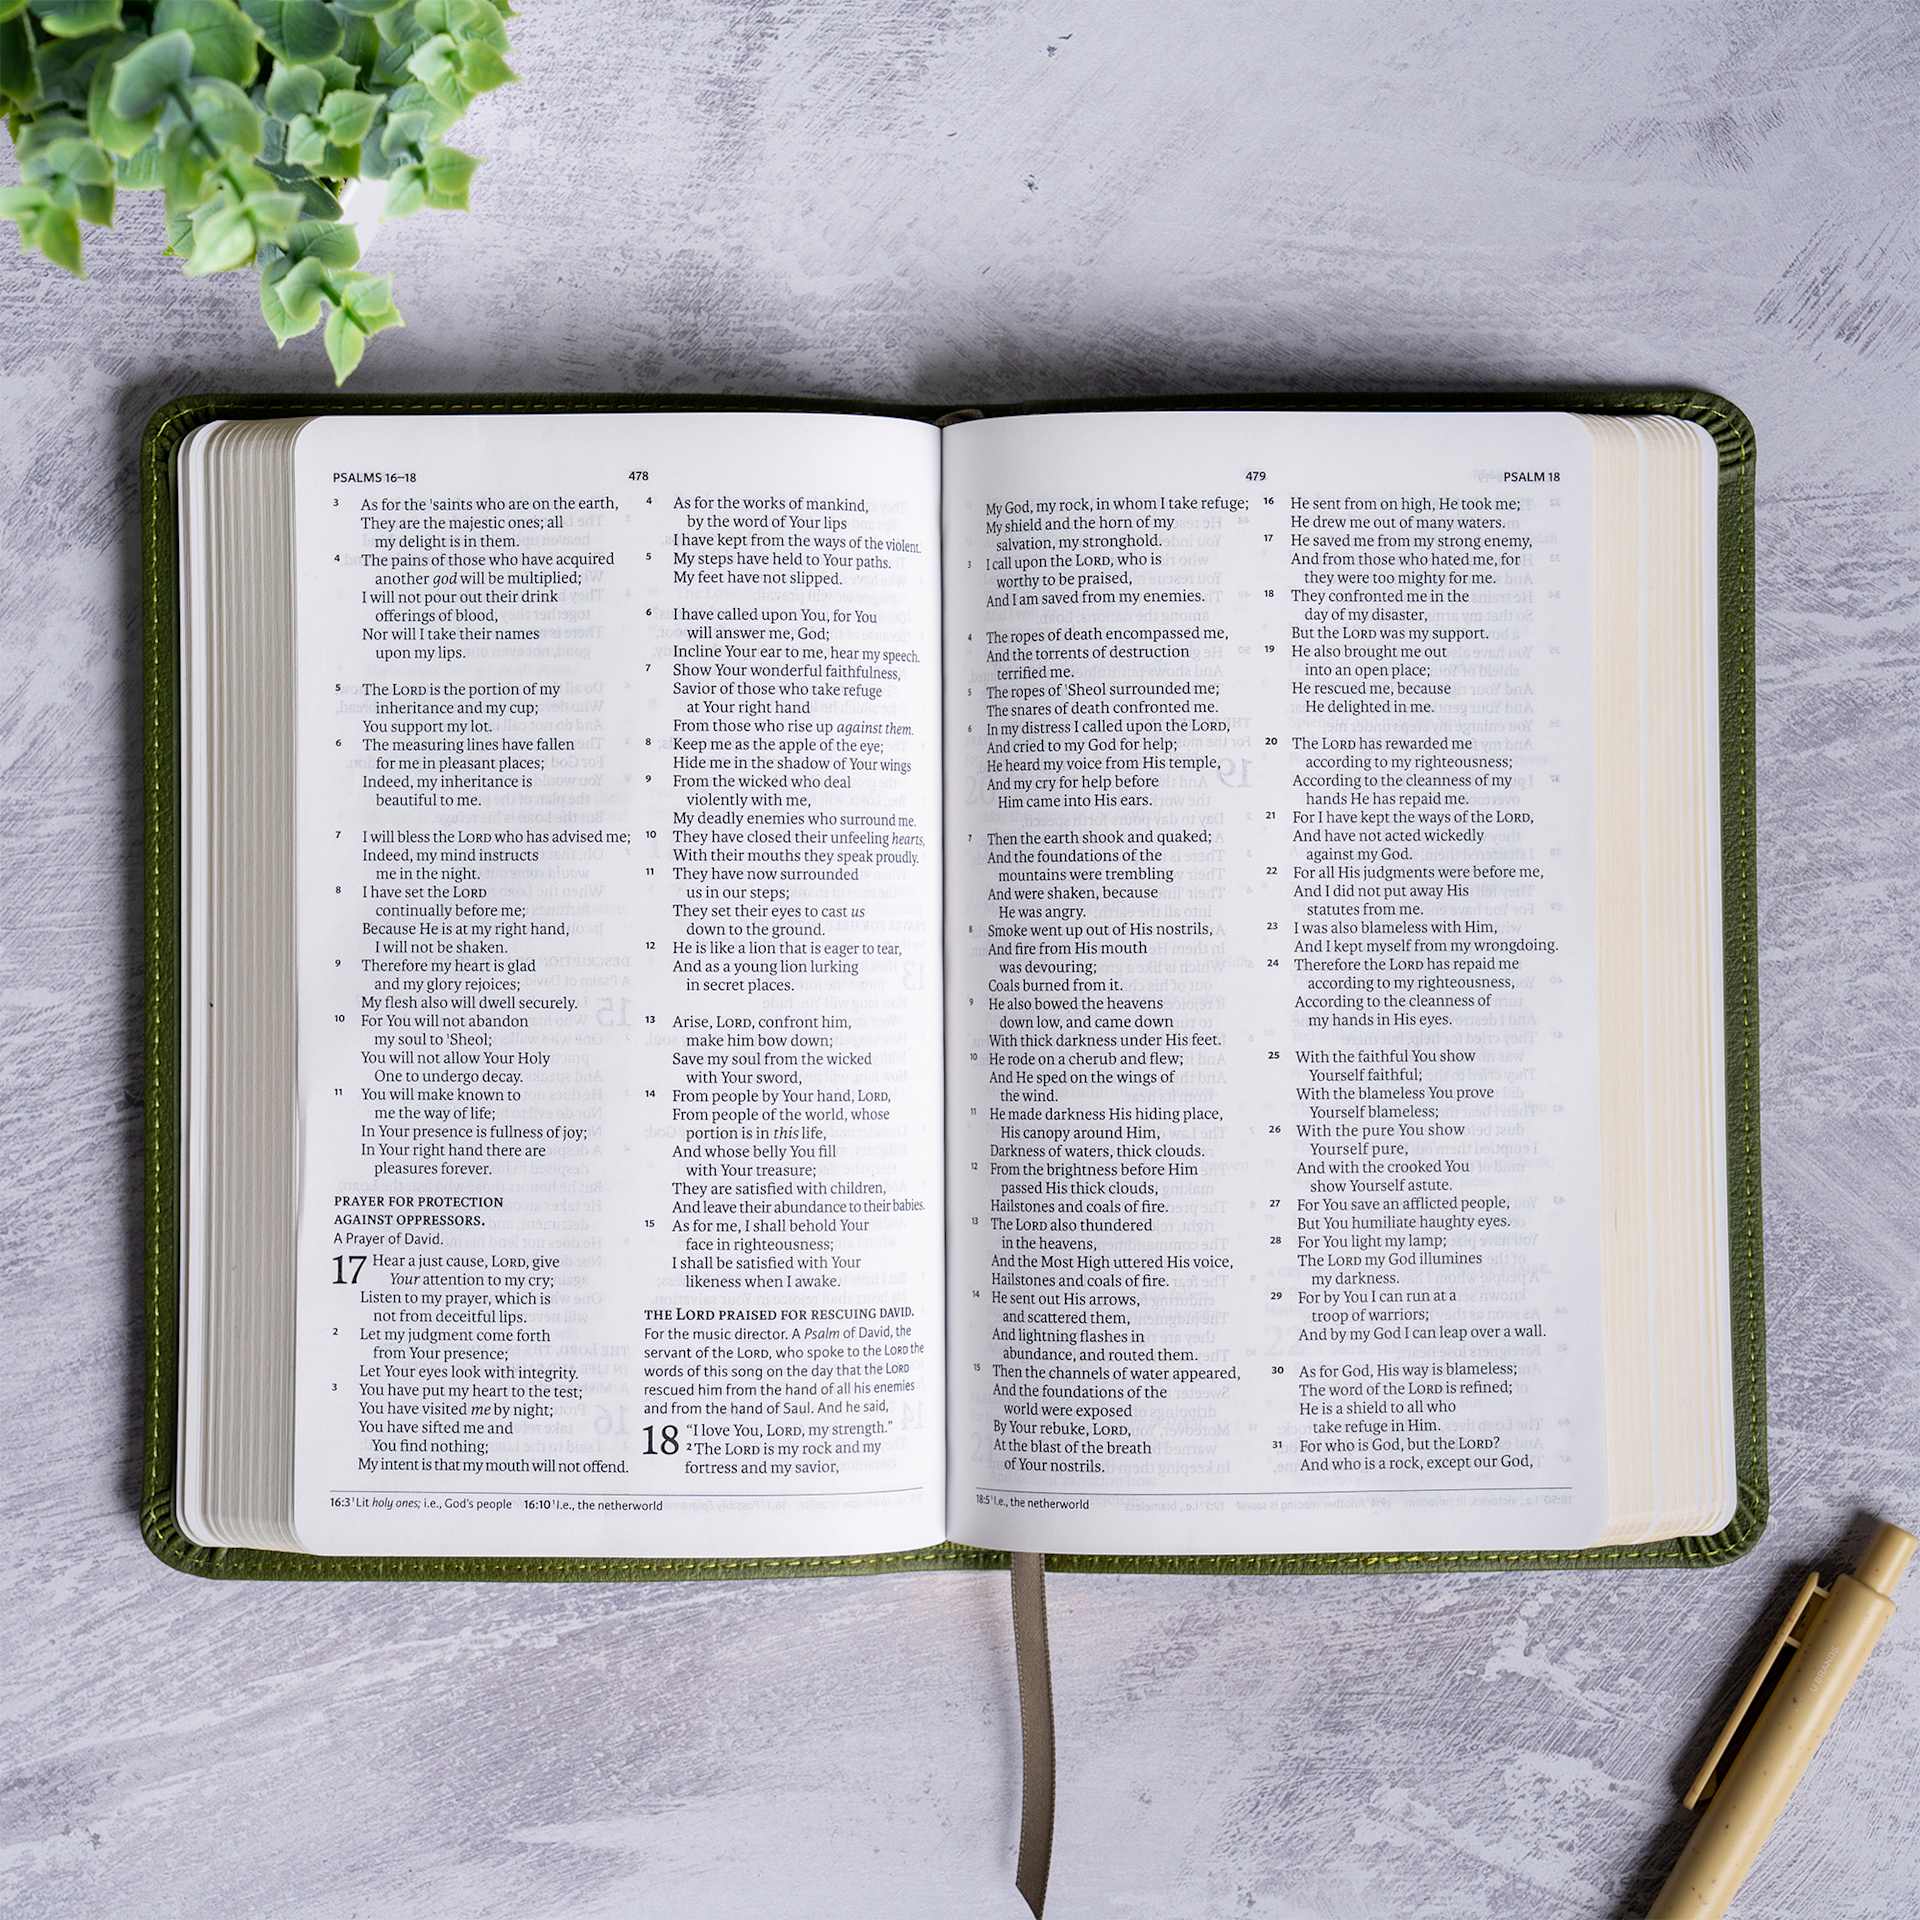 PSALMS 16–18
478
3 As for the ¹saints who are on the earth,
They are the majestic ones; all
my delight is in them.
4 The pains of those who have acquired
another god will be multiplied;
I will not pour out their drink
offerings of blood,
Nor will I take their names
upon my lips.
5 The LORD is the portion of my
inheritance and my cup;
You support my lot.
6 The measuring lines have fallen
for me in pleasant places;
Indeed, my inheritance is
beautiful to me.
7 I will bless the LORD who has advised me;
Indeed, my mind instructs
me in the night.
8 I have set the LORD
continually before me;
Because He is at my right hand,
I will not be shaken.
9 Therefore my heart is glad
and my glory rejoices;
My flesh also will dwell securely.
10 For You will not abandon
my soul to ¹Sheol;
You will not allow Your Holy
One to undergo decay.
11 You will make known to
me the way of life;
In Your presence is fullness of joy;
In Your right hand there are
pleasures forever.
PRAYER FOR PROTECTION
AGAINST OPPRESSORS.
A Prayer of David.
17 Hear a just cause, LORD, give
Your attention to my cry;
Listen to my prayer, which is
not from deceitful lips.
2 Let my judgment come forth
from Your presence;
Let Your eyes look with integrity.
3 You have put my heart to the test;
You have visited me by night;
You have sifted me and
You find nothing;
My intent is that my mouth will not offend.
4 As for the works of mankind,
by the word of Your lips
I have kept from the ways of the violent.
5 My steps have held to Your paths.
My feet have not slipped.
6 I have called upon You, for You
will answer me, God;
Incline Your ear to me, hear my speech.
7 Show Your wonderful faithfulness,
Savior of those who take refuge
at Your right hand
From those who rise up against them.
8 Keep me as the apple of the eye;
Hide me in the shadow of Your wings
9 From the wicked who deal
violently with me,
My deadly enemies who surround me.
10 They have closed their unfeeling hearts,
With their mouths they speak proudly.
11 They have now surrounded
us in our steps;
They set their eyes to cast us
down to the ground.
12 He is like a lion that is eager to tear,
And as a young lion lurking
in secret places.
13 Arise, LORD, confront him,
make him bow down;
Save my soul from the wicked
with Your sword,
14 From people by Your hand, LORD,
From people of the world, whose
portion is in this life,
And whose belly You fill
with Your treasure;
They are satisfied with children,
And leave their abundance to their babies.
15 As for me, I shall behold Your
face in righteousness;
I shall be satisfied with Your
likeness when I awake.
THE LORD PRAISED FOR RESCUING DAVID.
For the music director. A Psalm of David, the
servant of the LORD, who spoke to the LORD the
words of this song on the day that the LORD
rescued him from the hand of all his enemies
and from the hand of Saul. And he said,
18 “I love You, LORD, my strength.”
2 The LORD is my rock and my
fortress and my savior,
16:3 ¹Lit holy ones; i.e., God’s people 16:10 ¹I.e., the netherworld
479
PSALM 18
My God, my rock, in whom I take refuge;
My shield and the horn of my
salvation, my stronghold.
3 I call upon the LORD, who is
worthy to be praised,
And I am saved from my enemies.
4 The ropes of death encompassed me,
And the torrents of destruction
terrified me.
5 The ropes of ¹Sheol surrounded me;
The snares of death confronted me.
6 In my distress I called upon the LORD,
And cried to my God for help;
He heard my voice from His temple,
And my cry for help before
Him came into His ears.
7 Then the earth shook and quaked;
And the foundations of the
mountains were trembling
And were shaken, because
He was angry.
8 Smoke went up out of His nostrils,
And fire from His mouth
was devouring;
Coals burned from it.
9 He also bowed the heavens
down low, and came down
With thick darkness under His feet.
10 He rode on a cherub and flew;
And He sped on the wings of
the wind.
11 He made darkness His hiding place,
His canopy around Him,
Darkness of waters, thick clouds.
12 From the brightness before Him
passed His thick clouds,
Hailstones and coals of fire.
13 The LORD also thundered
in the heavens,
And the Most High uttered His voice,
Hailstones and coals of fire.
14 He sent out His arrows,
and scattered them,
And lightning flashes in
abundance, and routed them.
15 Then the channels of water appeared,
And the foundations of the
world were exposed
By Your rebuke, LORD,
At the blast of the breath
of Your nostrils.
16 He sent from on high, He took me;
He drew me out of many waters.
17 He saved me from my strong enemy,
And from those who hated me, for
they were too mighty for me.
18 They confronted me in the
day of my disaster,
But the LORD was my support.
19 He also brought me out
into an open place;
He rescued me, because
He delighted in me.
20 The LORD has rewarded me
according to my righteousness;
According to the cleanness of my
hands He has repaid me.
21 For I have kept the ways of the LORD,
And have not acted wickedly
against my God.
22 For all His judgments were before me,
And I did not put away His
statutes from me.
23 I was also blameless with Him,
And I kept myself from my wrongdoing.
24 Therefore the LORD has repaid me
according to my righteousness,
According to the cleanness of
my hands in His eyes.
25 With the faithful You show
Yourself faithful;
With the blameless You prove
Yourself blameless;
26 With the pure You show
Yourself pure,
And with the crooked You
show Yourself astute.
27 For You save an afflicted people,
But You humiliate haughty eyes.
28 For You light my lamp;
The LORD my God illumines
my darkness.
29 For by You I can run at a
troop of warriors;
And by my God I can leap over a wall.
30 As for God, His way is blameless;
The word of the LORD is refined;
He is a shield to all who
take refuge in Him.
31 For who is God, but the LORD?
And who is a rock, except our God,
18:5 ¹I.e., the netherworld